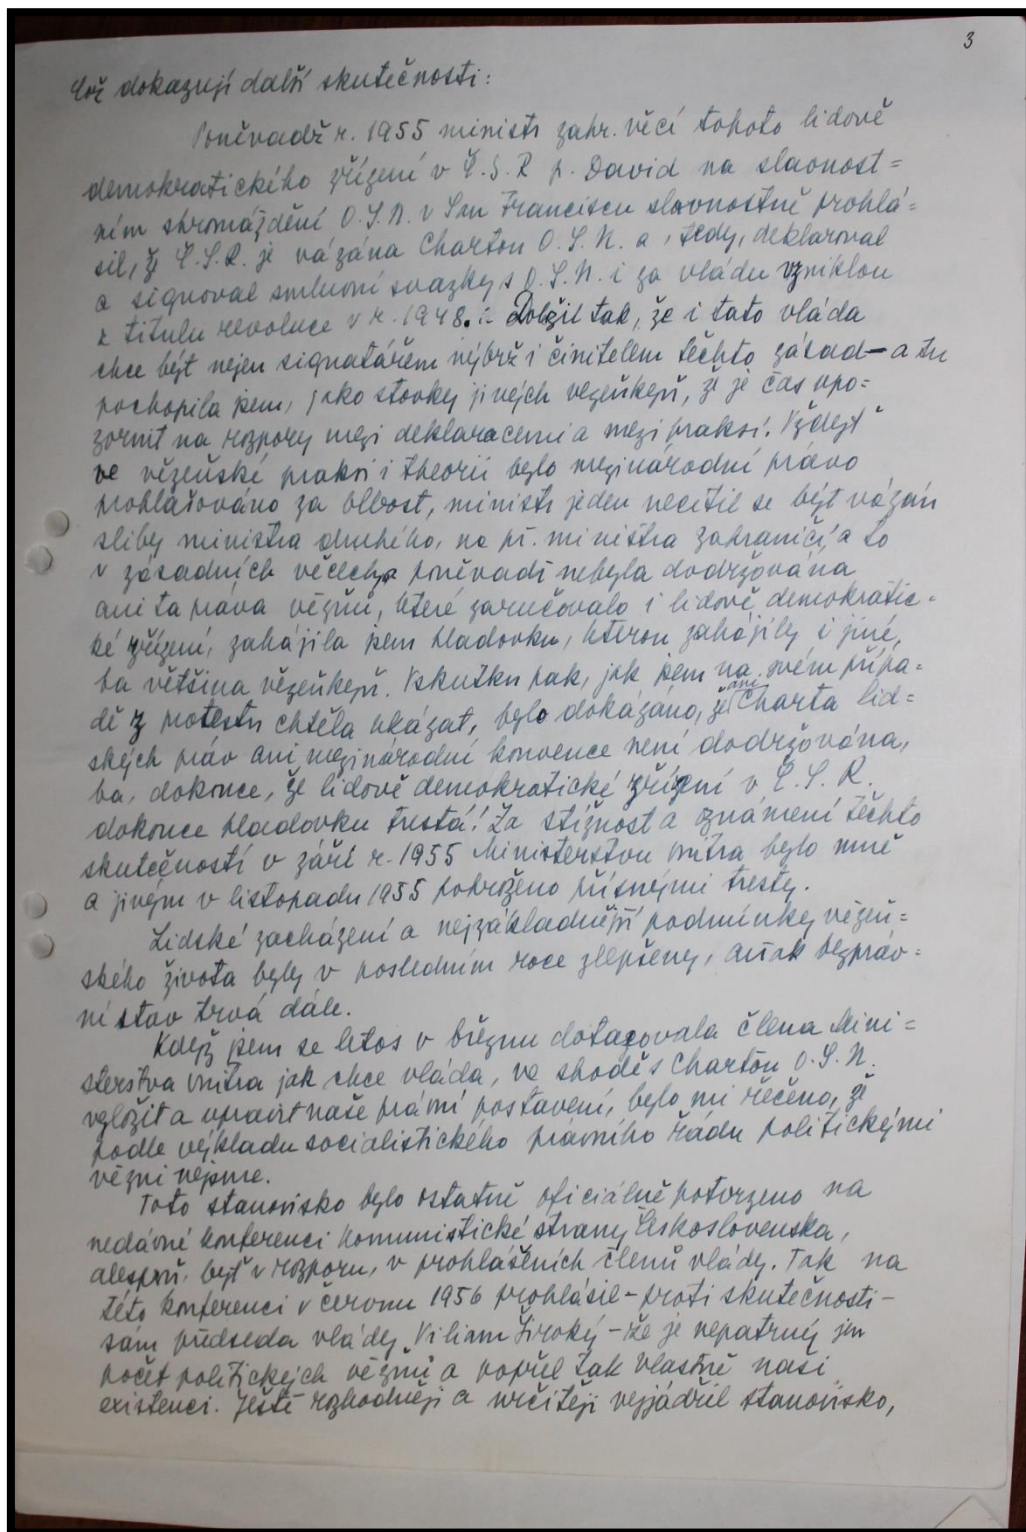 3
Což dokazují další skutečnosti:
Poněvadž r. 1955 ministr zahr. věcí tohoto lidově
demokratického zřízení v Č.S.R p. David na slavnost=
ním shromáždění O.S.N. v San Franciscu slavnostně prohlá=
sil, že Č.S.R. je vázána Chartou O.S.N. a, tedy, deklaroval
a signoval smluvní svazky s O.S.N. i za vládu vzniklou
z titulu revoluce v r. 1948. :- Doložil tak, že i tato vláda
chce být nejen signatářem nýbrž i činitelem těchto zásad - a tu
pochopila jsem, jako stovky jiných vězeňkyň, že je čas upo=
zornit na rozpory mezi deklaracemi a mezi praksí. Vždyť
ve vězeňské praksi i theorii bylo mezinárodní právo
prohlašováno za blbost, ministr jeden necítil se být vázán
sliby ministra druhého, na př. ministra zahraničí, a to
v zásadních věcech, a poněvadž nebyla dodržována
ani ta práva vězňů, které zaručovalo i lidově demokratic=
ké zřízení, zahájila jsem hladovku, kterou zahájily i jiné,
ba většina vězeňkyň. Vskutku pak, jak jsem na svém přípa=
dě z protestu chtěla ukázat, bylo dokázáno, že ani Charta lid=
ských práv ani mezinárodní konvence není dodržována,
ba, dokonce, že lidově demokratické zřízení v Č.S.R.
dokonce hladovku trestá! Za stížnost a oznámení těchto
skutečností v září r. 1955 Ministerstvu vnitra bylo mně
a jiným v listopadu 1955 pohroženo přísnými tresty.
Lidské zacházení a nejzákladnější podmínky vězeň=
ského života byly v posledním roce zlepšeny, avšak bezpráv=
ní stav trvá dále.
Když jsem se letos v březnu dotazovala člena Mini=
sterstva vnitra jak chce vláda, ve shodě s Chartou O.S.N.
vyložit a upravit naše právní postavení, bylo mi řečeno, že
podle výkladu socialistického právního řádu politickými
vězni nejsme.
Toto stanovisko bylo ostatně oficiálně potvrzeno na
nedávné konferenci Komunistické strany Československa,
alespoň, byť v rozporu, v prohlášeních členů vlády. Tak na
této konferenci v červnu 1956 prohlásil - proti skutečnosti -
sám předseda vlády, Viliam Široký - že je nepatrný jen
počet politických vězňů a popřel tak vlastně naši
existenci. Ještě rozhodněji a určitěji vyjádřil stanovisko,